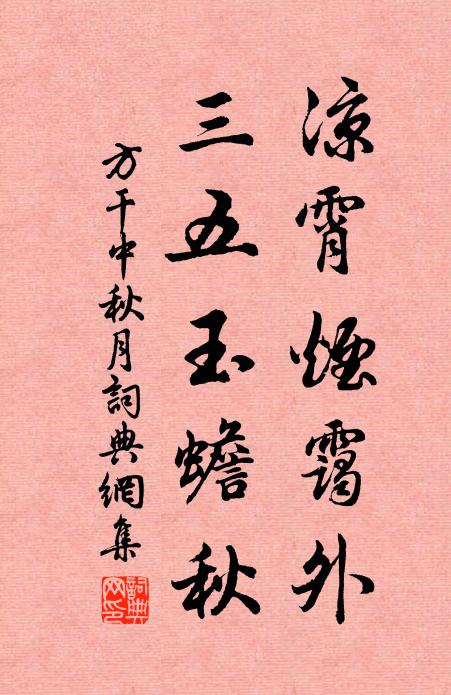 涼霄煙靄外
三五玉蟾秋
方干中秋月詞典網集
詞典網印